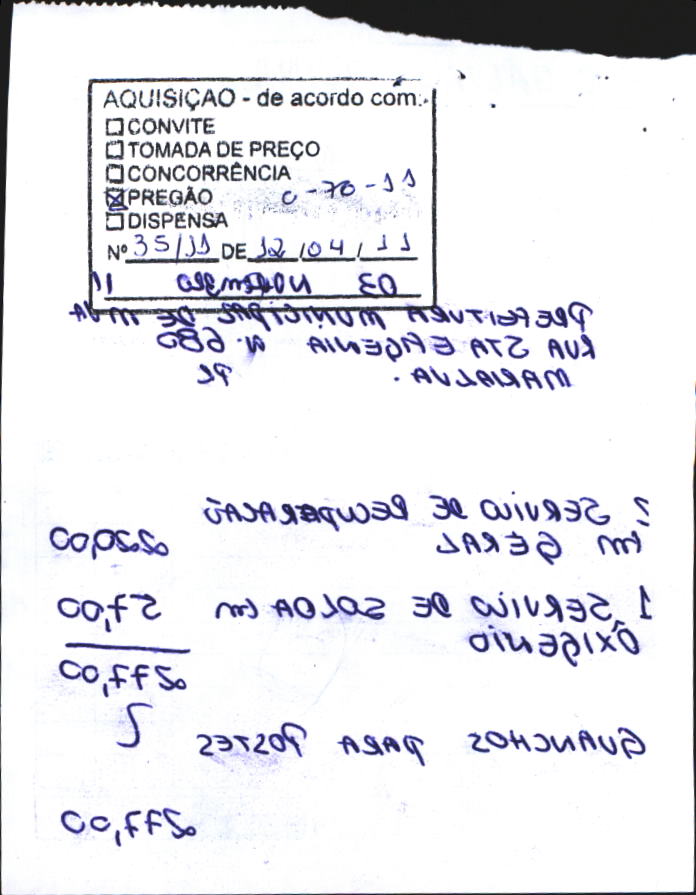 AQUISIÇÃO - de acordo com:
☐ CONVITE
☐ TOMADA DE PREÇO
☐ CONCORRÊNCIA
☒ PREGÃO C-70-11
☐ DISPENSA
Nº 35/11 DE 12/04/11
03 NOVEMBRO 11
PREFEITURA MUNICIPAL DE MVA
RUA STA EFIGENIA N. 680
MARIALVA. PR
2 SERVIÇO DE RECUPERAÇÃO
EM GERAL 220,00
1 SERVIÇO DE SOLDA EM 57,00
ÔXIGENIO
277,00
GUANCHOS PARA POSTES
277,00